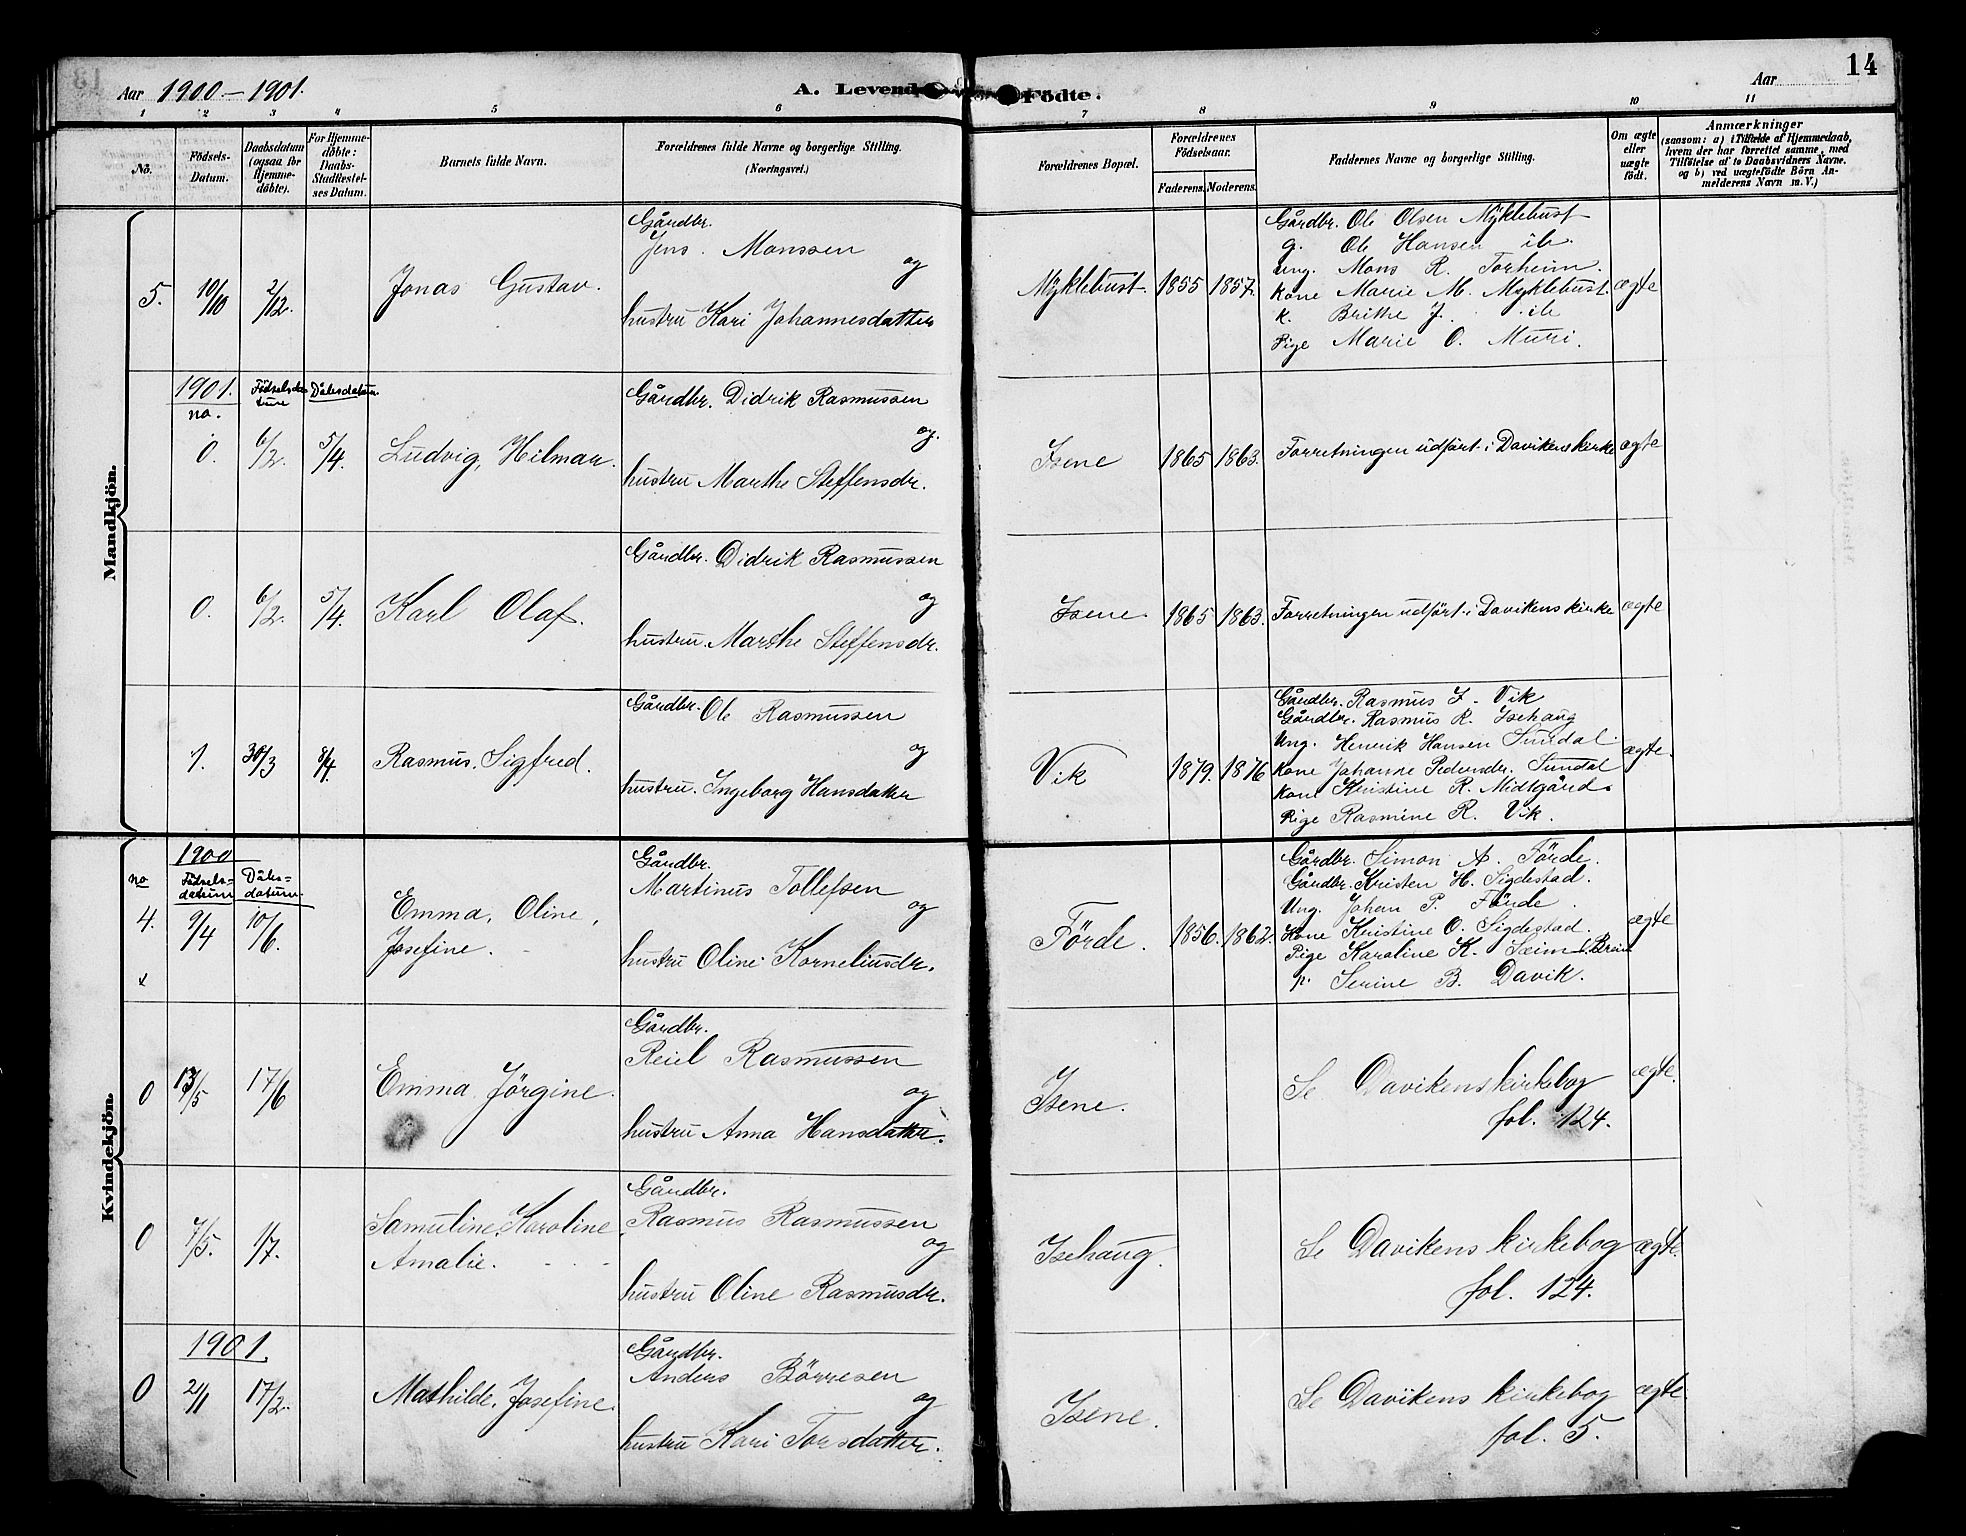 Aar 1900-1901. A. Levende Födte. Aar 14
1 2 3 4 5 6 7 8 9 10 11
No. Födsels-Datum. Daabsdatum (ogsaa for Hjemme-döbte). For Hjemme-döbte: Daabs-Stadfæstel-ses Datum. Barnets fulde Navn. Forældrenes fulde Navne og borgerlige Stilling. (Næringsvei.) Forældrenes Bopæl. Forældrenes Födselsaar. Faderens. Moderens. Faddernes Navne og borgerlige Stilling. Om ægte eller uægte födt. Anmærkninger (saasom: a) i Tilfælde af Hjemmedaab, hvem der har forrettet samme, med Tilföielse af to Daabsvidners Navne. og b) ved uægtefödte Börn An-melderens Navn m. V.)
Mandkjön.
5. 10/10 2/12. Jonas Gustav.
Gårdbr.
Jens. Monssen
og
hustru Kari Johannesdatter
Myklebust. 1855 1857.
Gårdbr. Ole Olsen Myklebust
g. Ole Hansen ib.
ung. Mons R. Torheim.
kone Marie M. Myklebust.
k. Brithe J. ib
Pige Marie O. Muri.
ægte
1901.
no. Födselsda-tum Dåbsdatum.
0. 6/2. 5/4. Ludvig, Hilmar.
Gårdbr. Didrik Rasmussen
og.
hustru Marthe Steffensdr.
Isene 1865 1863. Forretningen udfört i Davikens kirke ægte
0. 6/2. 5/4. Karl Olaf.
Gårdbr. Didrik Rasmussen
og
hustru. Marthe Steffensdr.
Isene 1865 1863. Forretningen udfört i Davikens kirke ægte
1. 30/3 8/4. Rasmus. Sigfred.
Gårdbr. Ole Rasmussen
og
hustru. Ingeborg Hansdatter
Vik 1879. 1876
Gårdbr. Rasmus I. Vik
Gårdbr. Rasmus R. Isehaug
Ung. Henrik Hansen Sundal.
kone Johanne Pedersdr. Sundal
kone Kristine R. Midtgård.
Pige Rasmine R. Vik.
ægte.
Kvindekjön.
1900
no Födsels=datum Dåbs=datum.
4. 9/4 10/6. Emma, Oline,
Josefine.
x
Gårdbr.
Martinus Tollefsen
og
hustru Oline Korneliusdr.
Förde. 1856. 1862.
Gårdbr. Simon A. Förde.
Gårdbr. Kristen H. Sigdestad.
Ung. Johan P. Förde.
Kone Kristine O. Sigdestad.
Pige Karoline K. Seim
p. Serine B. Davik.
ægte
0 13/5 17/6 Emma Jörgine.
Gårdbr.
Reiel Rasmussen
og
hustru Anna Hansdatter.
Isene.
Se Davikens kirkebog
fol. 124.
ægte.
0 7/5. 1/7. Samuline, Karoline
Amalie.
Gårdbr.
Rasmus Rasmussen
og
hustru Oline Rasmusdr.
Isehaug.
Se Davikens kirkebog
fol. 124.
ægte.
1901.
0 2/1 17/2. Mathilde, Josefine.
Gårdbr.
Anders Börresen
og
hustru Kari Torsdatter.
Isene.
Se Davikens kirkebog
fol. 5.
ægte.